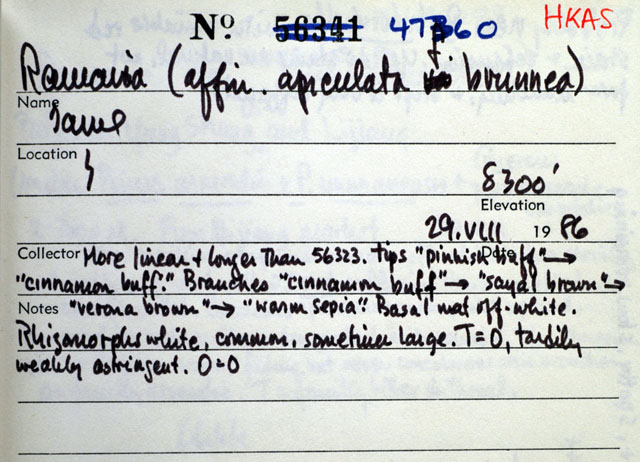 Nº 56341 47360 HKAS
Ramaria (affin. apiculata var brunnea)
Name
Same
Location
8300'
Elevation
29.VIII 1986
Collector More linear & longer than 56323. Tips "pinkish buff" → Date
"cinnamon buff." Branches "cinnamon buff" → "sayal brown" →
Notes "verona brown" → "warm sepia". Basal mat off-white.
Rhizomorphs white, common, sometimes large. T=0, tardily
weakly astringent. O=0